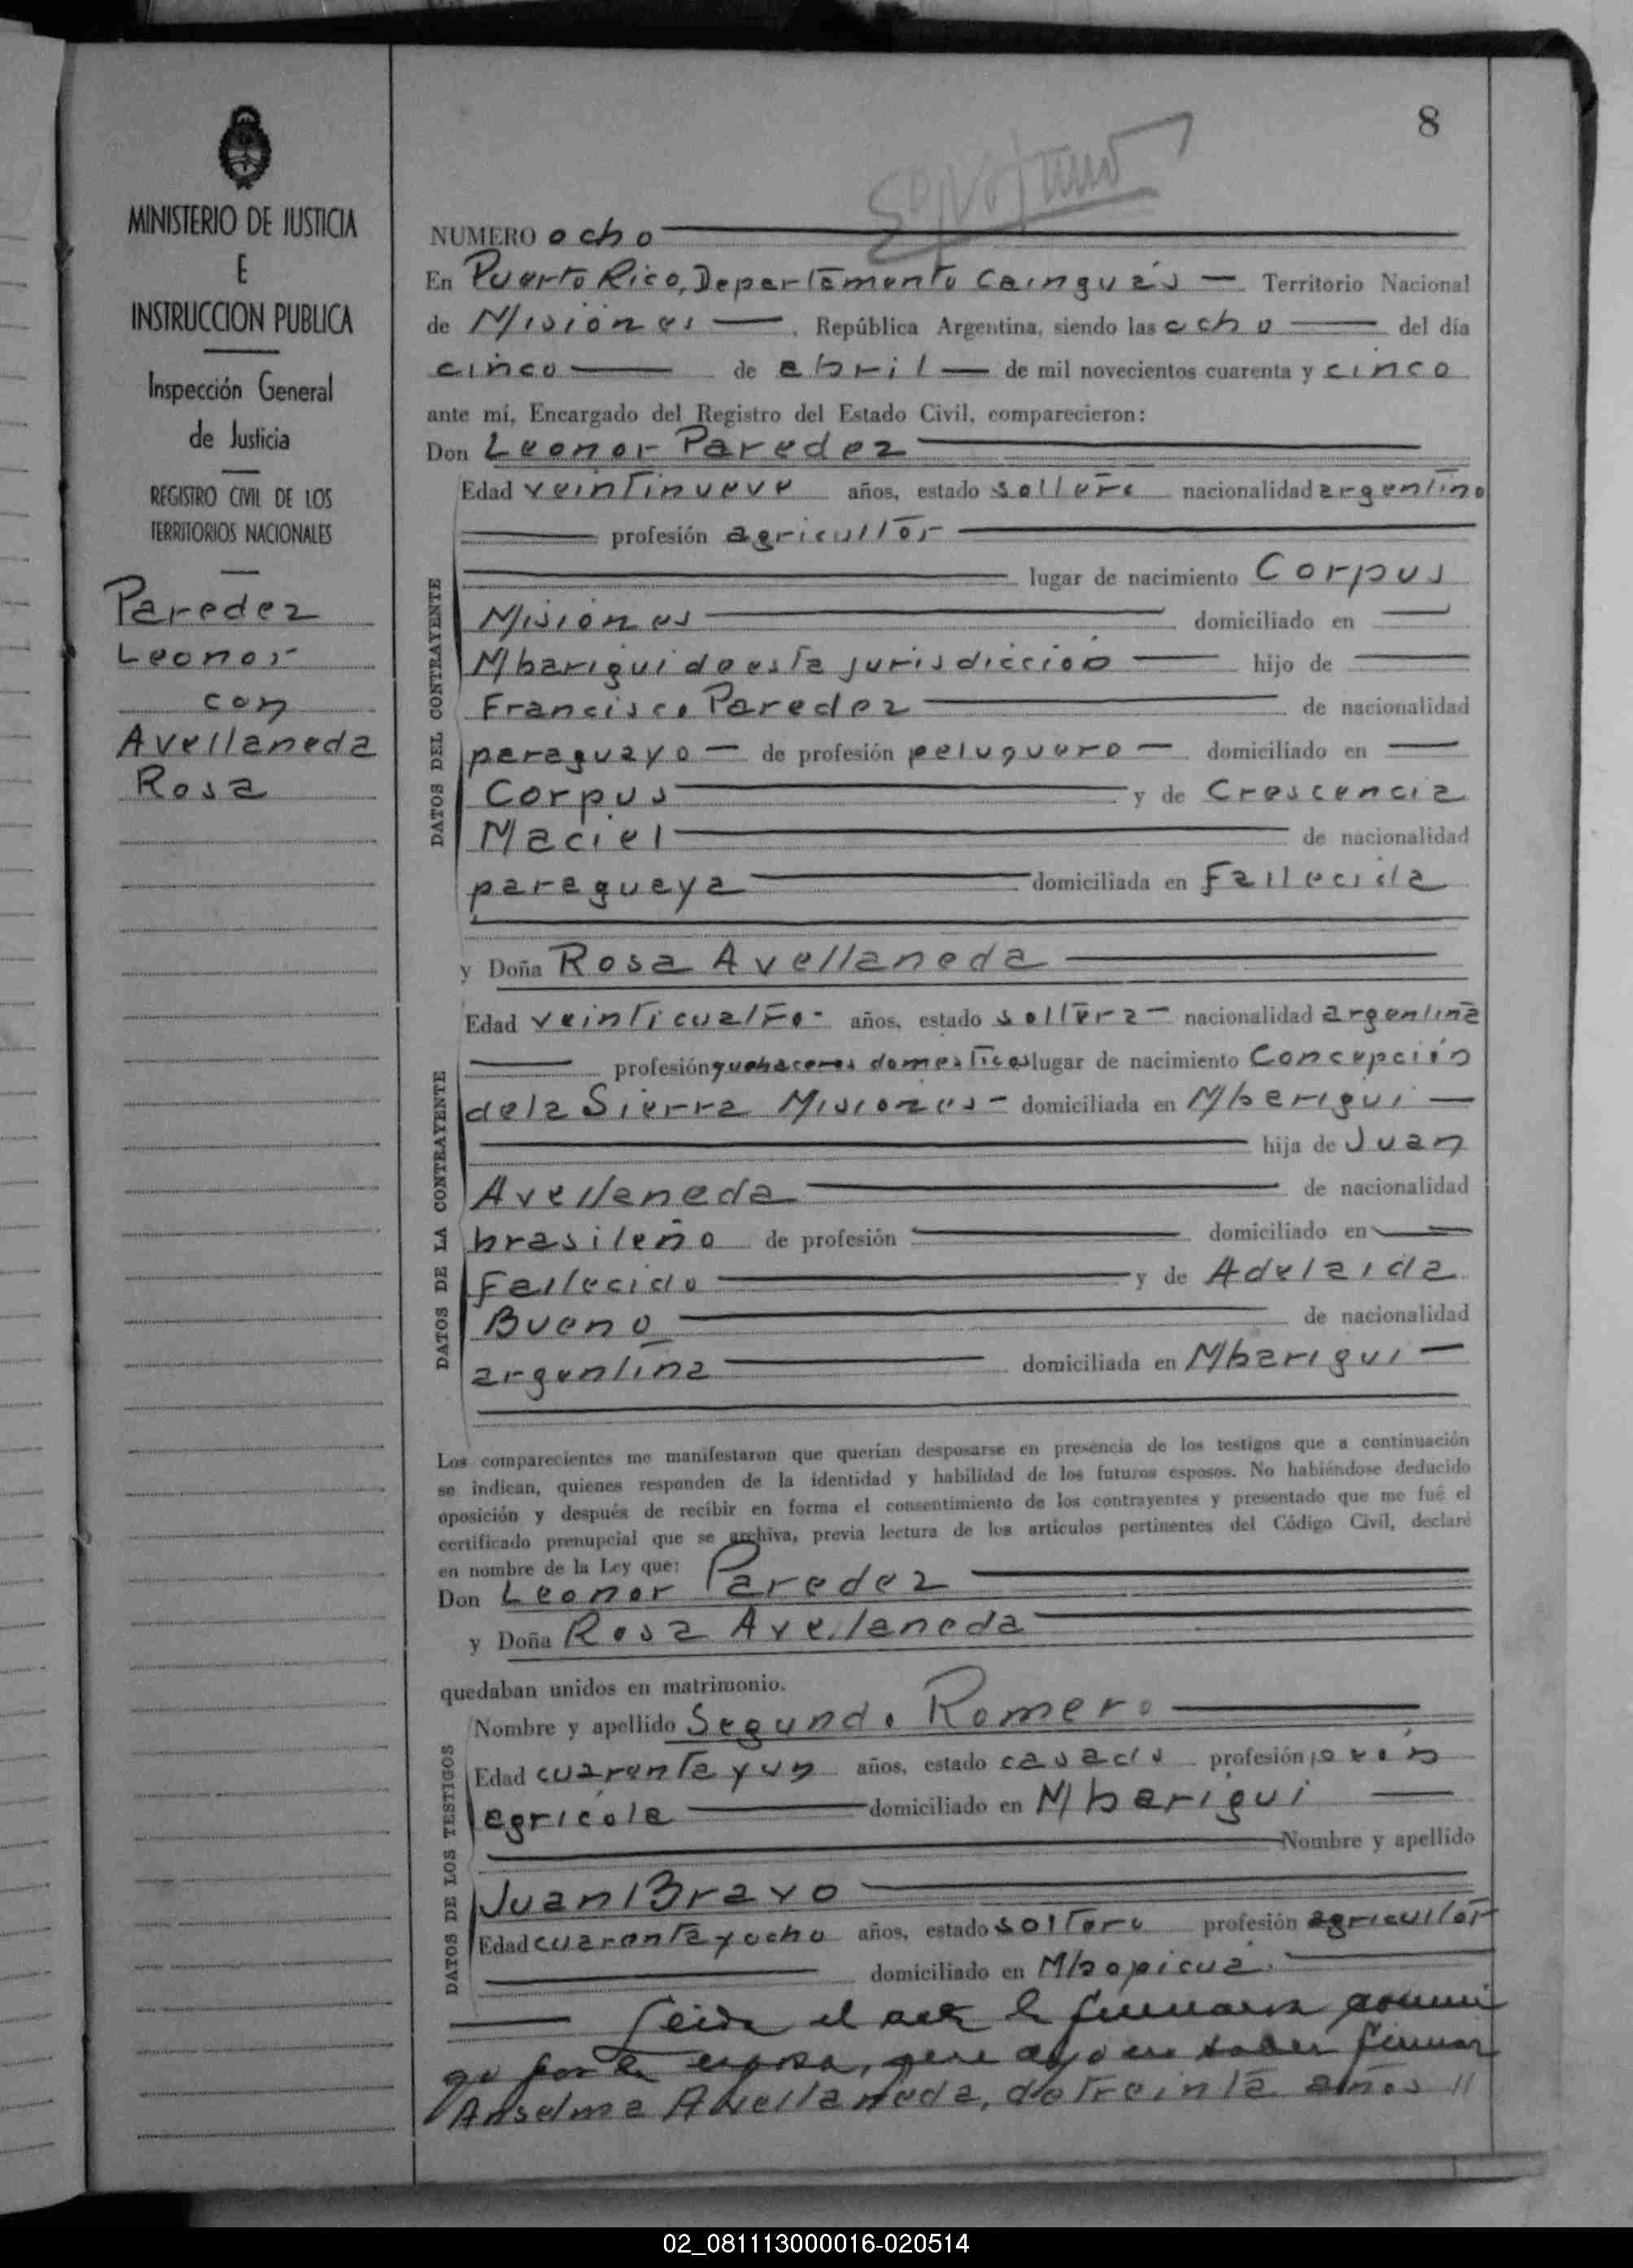 8
MINISTERIO DE JUSTICIA
E
INSTRUCCION PUBLICA
Inspección General
de Justicia
REGISTRO CIVIL DE LOS
TERRITORIOS NACIONALES
Paredez
Leonor
con
Avellaneda
Rosa
NUMERO ocho
En Puerto Rico, Departamento Cainguás Territorio Nacional
de Misiones, República Argentina, siendo las ocho del día
cinco de abril de mil novecientos cuarenta y cinco
ante mí, Encargado del Registro del Estado Civil, comparecieron:
Don Leonor Paredez
DATOS DEL CONTRAYENTE
Edad veintinueve años, estado soltero nacionalidad argentino
profesión agricultor
lugar de nacimiento Corpus
Misiones domiciliado en
Mbarigui de esta jurisdicción hijo de
Francisco Paredez de nacionalidad
paraguayo de profesión peluquero domiciliado en
Corpus y de Crescencia
Maciel de nacionalidad
paraguaya domiciliada en Fallecida
y Doña Rosa Avellaneda
DATOS DE LA CONTRAYENTE
Edad veinticuatro años, estado soltera nacionalidad argentina
profesión quehaceres domesticos lugar de nacimiento Concepción
de la Sierra Misiones domiciliada en Mbarigui
hija de Juan
Avellaneda de nacionalidad
brasileño de profesión domiciliado en
Fallecido y de Adelaida
Bueno de nacionalidad
argentina domiciliada en Mbarigui
Los comparecientes me manifestaron que querían desposarse en presencia de los testigos que a continuación
se indican, quienes responden de la identidad y habilidad de los futuros esposos. No habiéndose deducido
oposición y después de recibir en forma el consentimiento de los contrayentes y presentado que me fué el
certificado prenupcial que se archiva, previa lectura de los artículos pertinentes del Código Civil, declaré
en nombre de la Ley que:
Don Leonor Paredez
y Doña Rosa Avellaneda
quedaban unidos en matrimonio.
DATOS DE LOS TESTIGOS
Nombre y apellido Segundo Romero
Edad cuarenta y un años, estado casado profesión peón
agrícola domiciliado en Mbarigui
Nombre y apellido
Juan Bravo
Edad cuarenta y ocho años, estado soltero profesión agricultor
domiciliado en Mbopicuá
Leida el acta la firmaron conmi
go por la esposa, que dijo no saber firmar
Anselma Avellaneda, de treinta años //
02_081113000016-020514